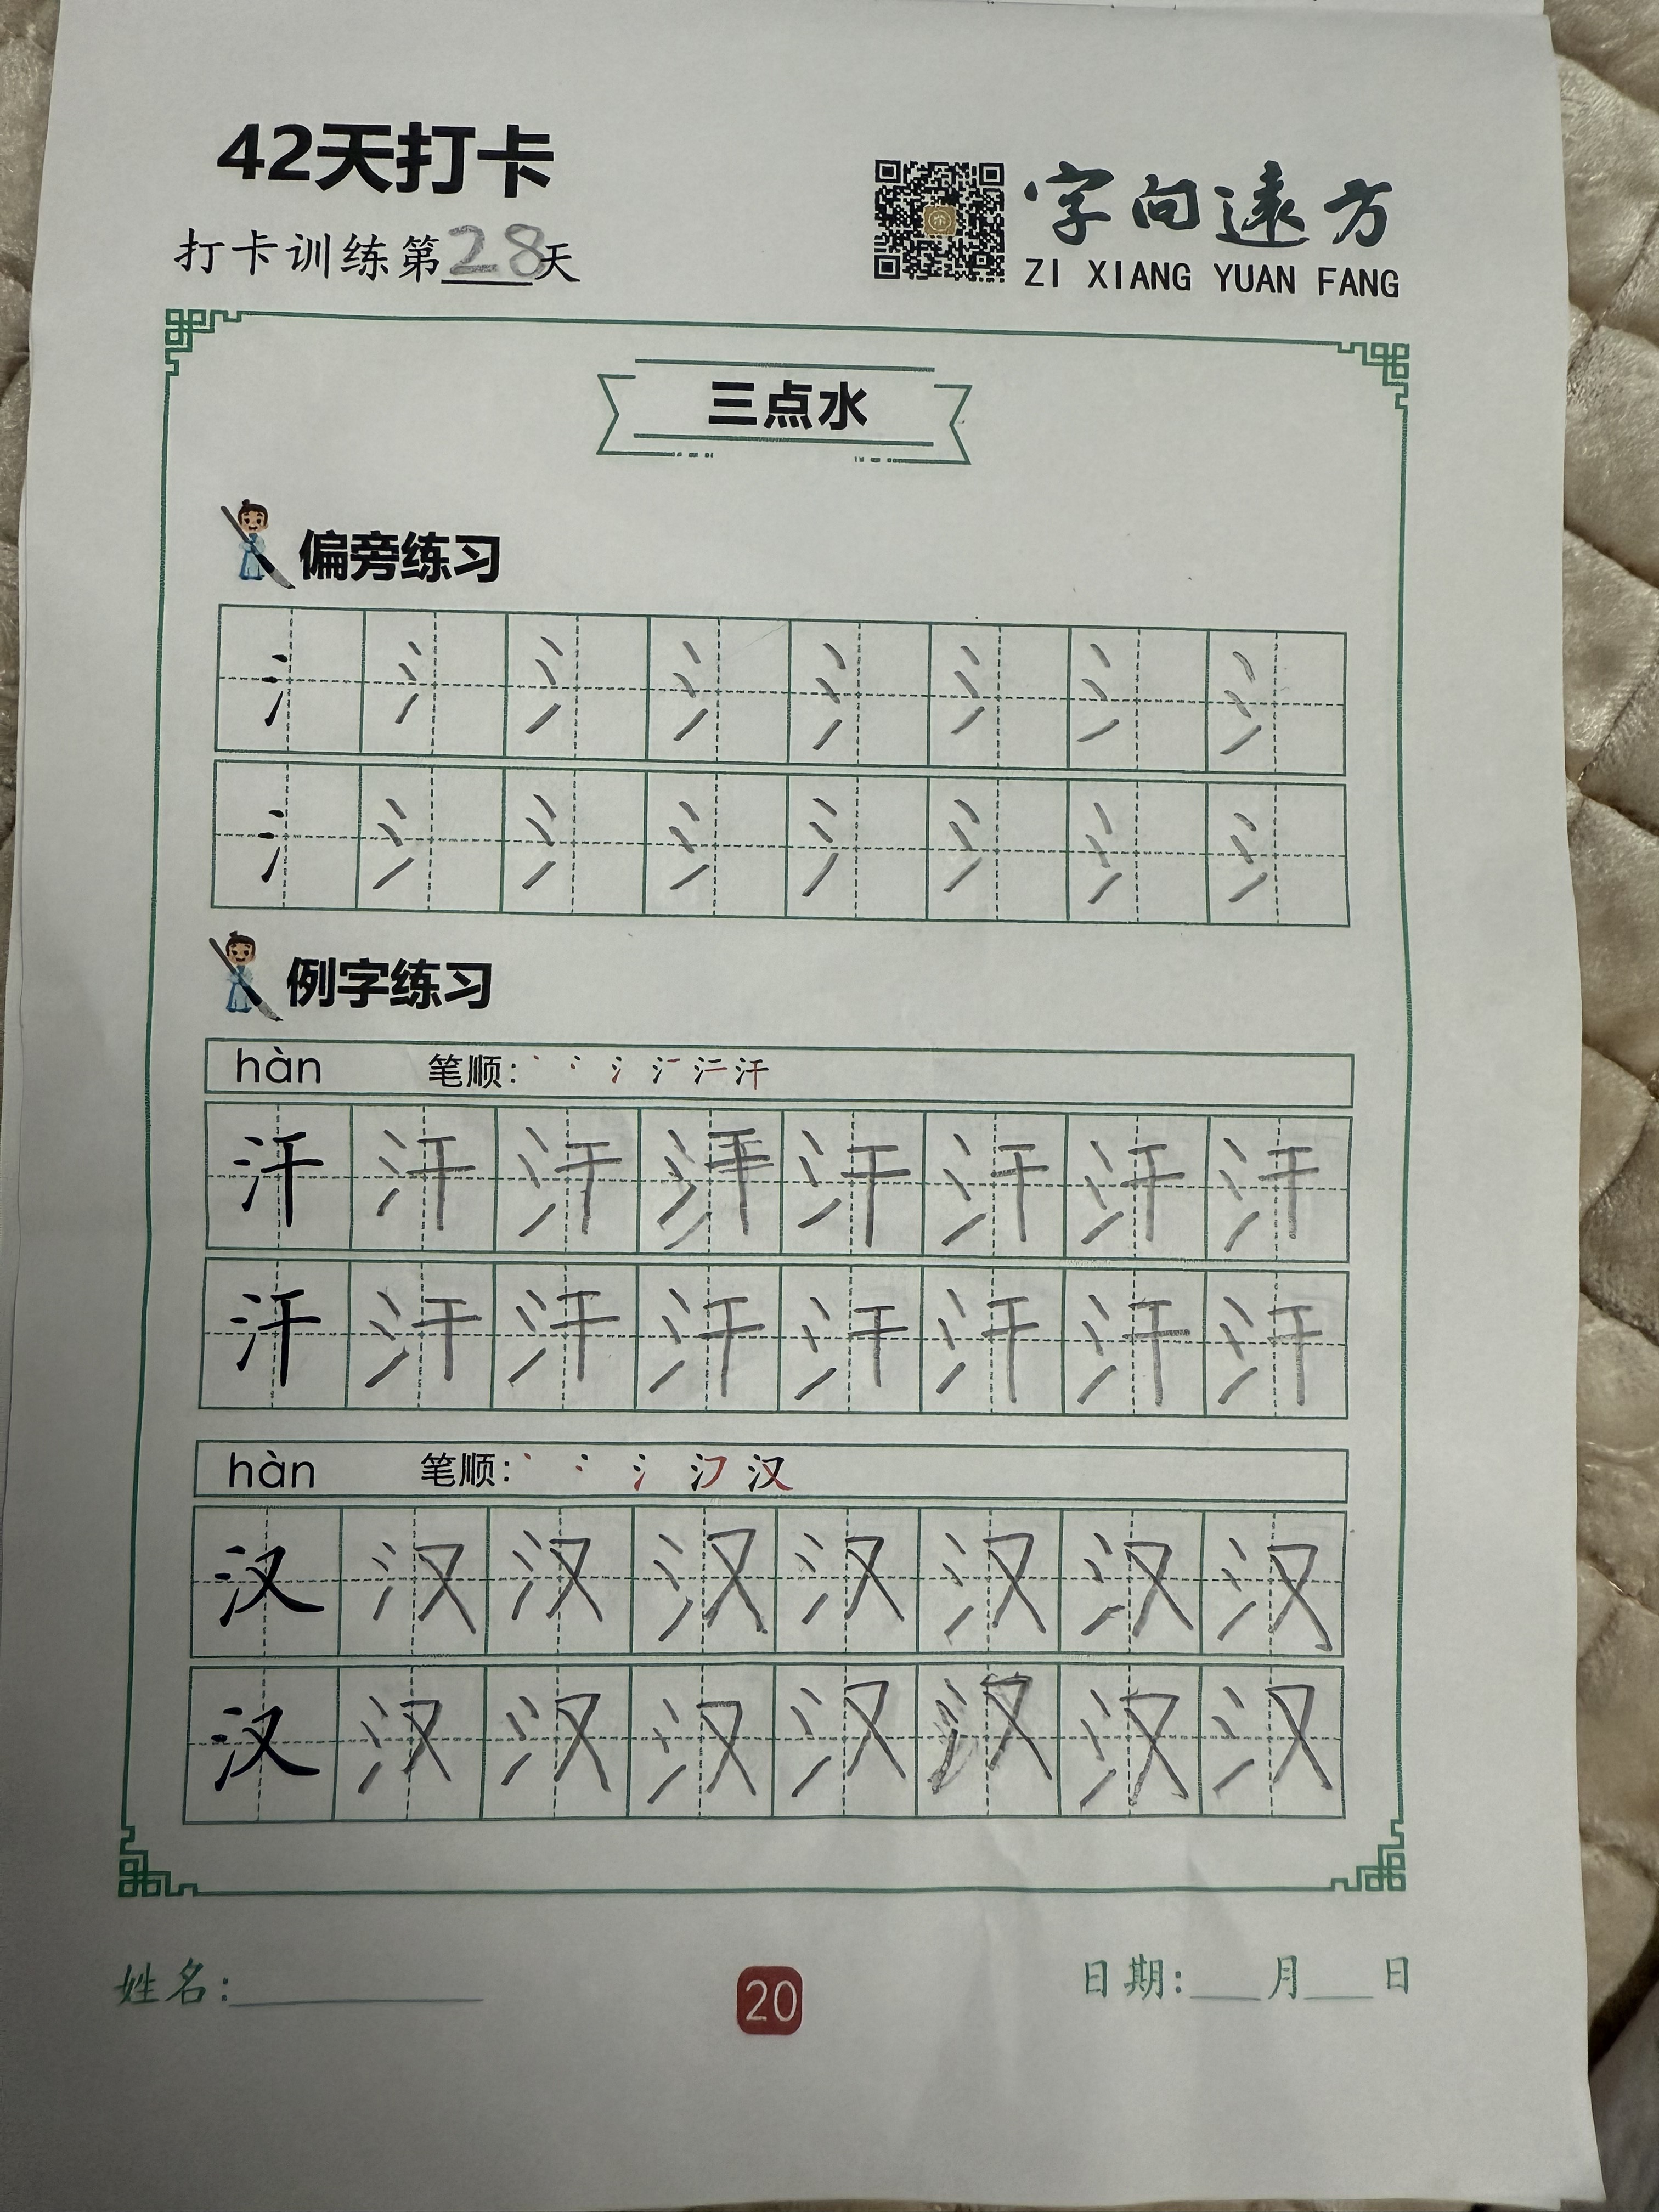 42天打卡
打卡训练第28天
字向遠方
ZI XIANG YUAN FANG
三点水
偏旁练习
氵 氵 氵 氵 氵 氵 氵 氵
氵 氵 氵 氵 氵 氵 氵 氵
例字练习
hàn 笔顺: 汗
汗 汗 汗 汗 汗 汗 汗 汗
汗 汗 汗 汗 汗 汗 汗 汗
hàn 笔顺: 汉
汉 汉 汉 汉 汉 汉 汉 汉
汉 汉 汉 汉 汉 汉 汉 汉
姓名:
20
日期: 月 日